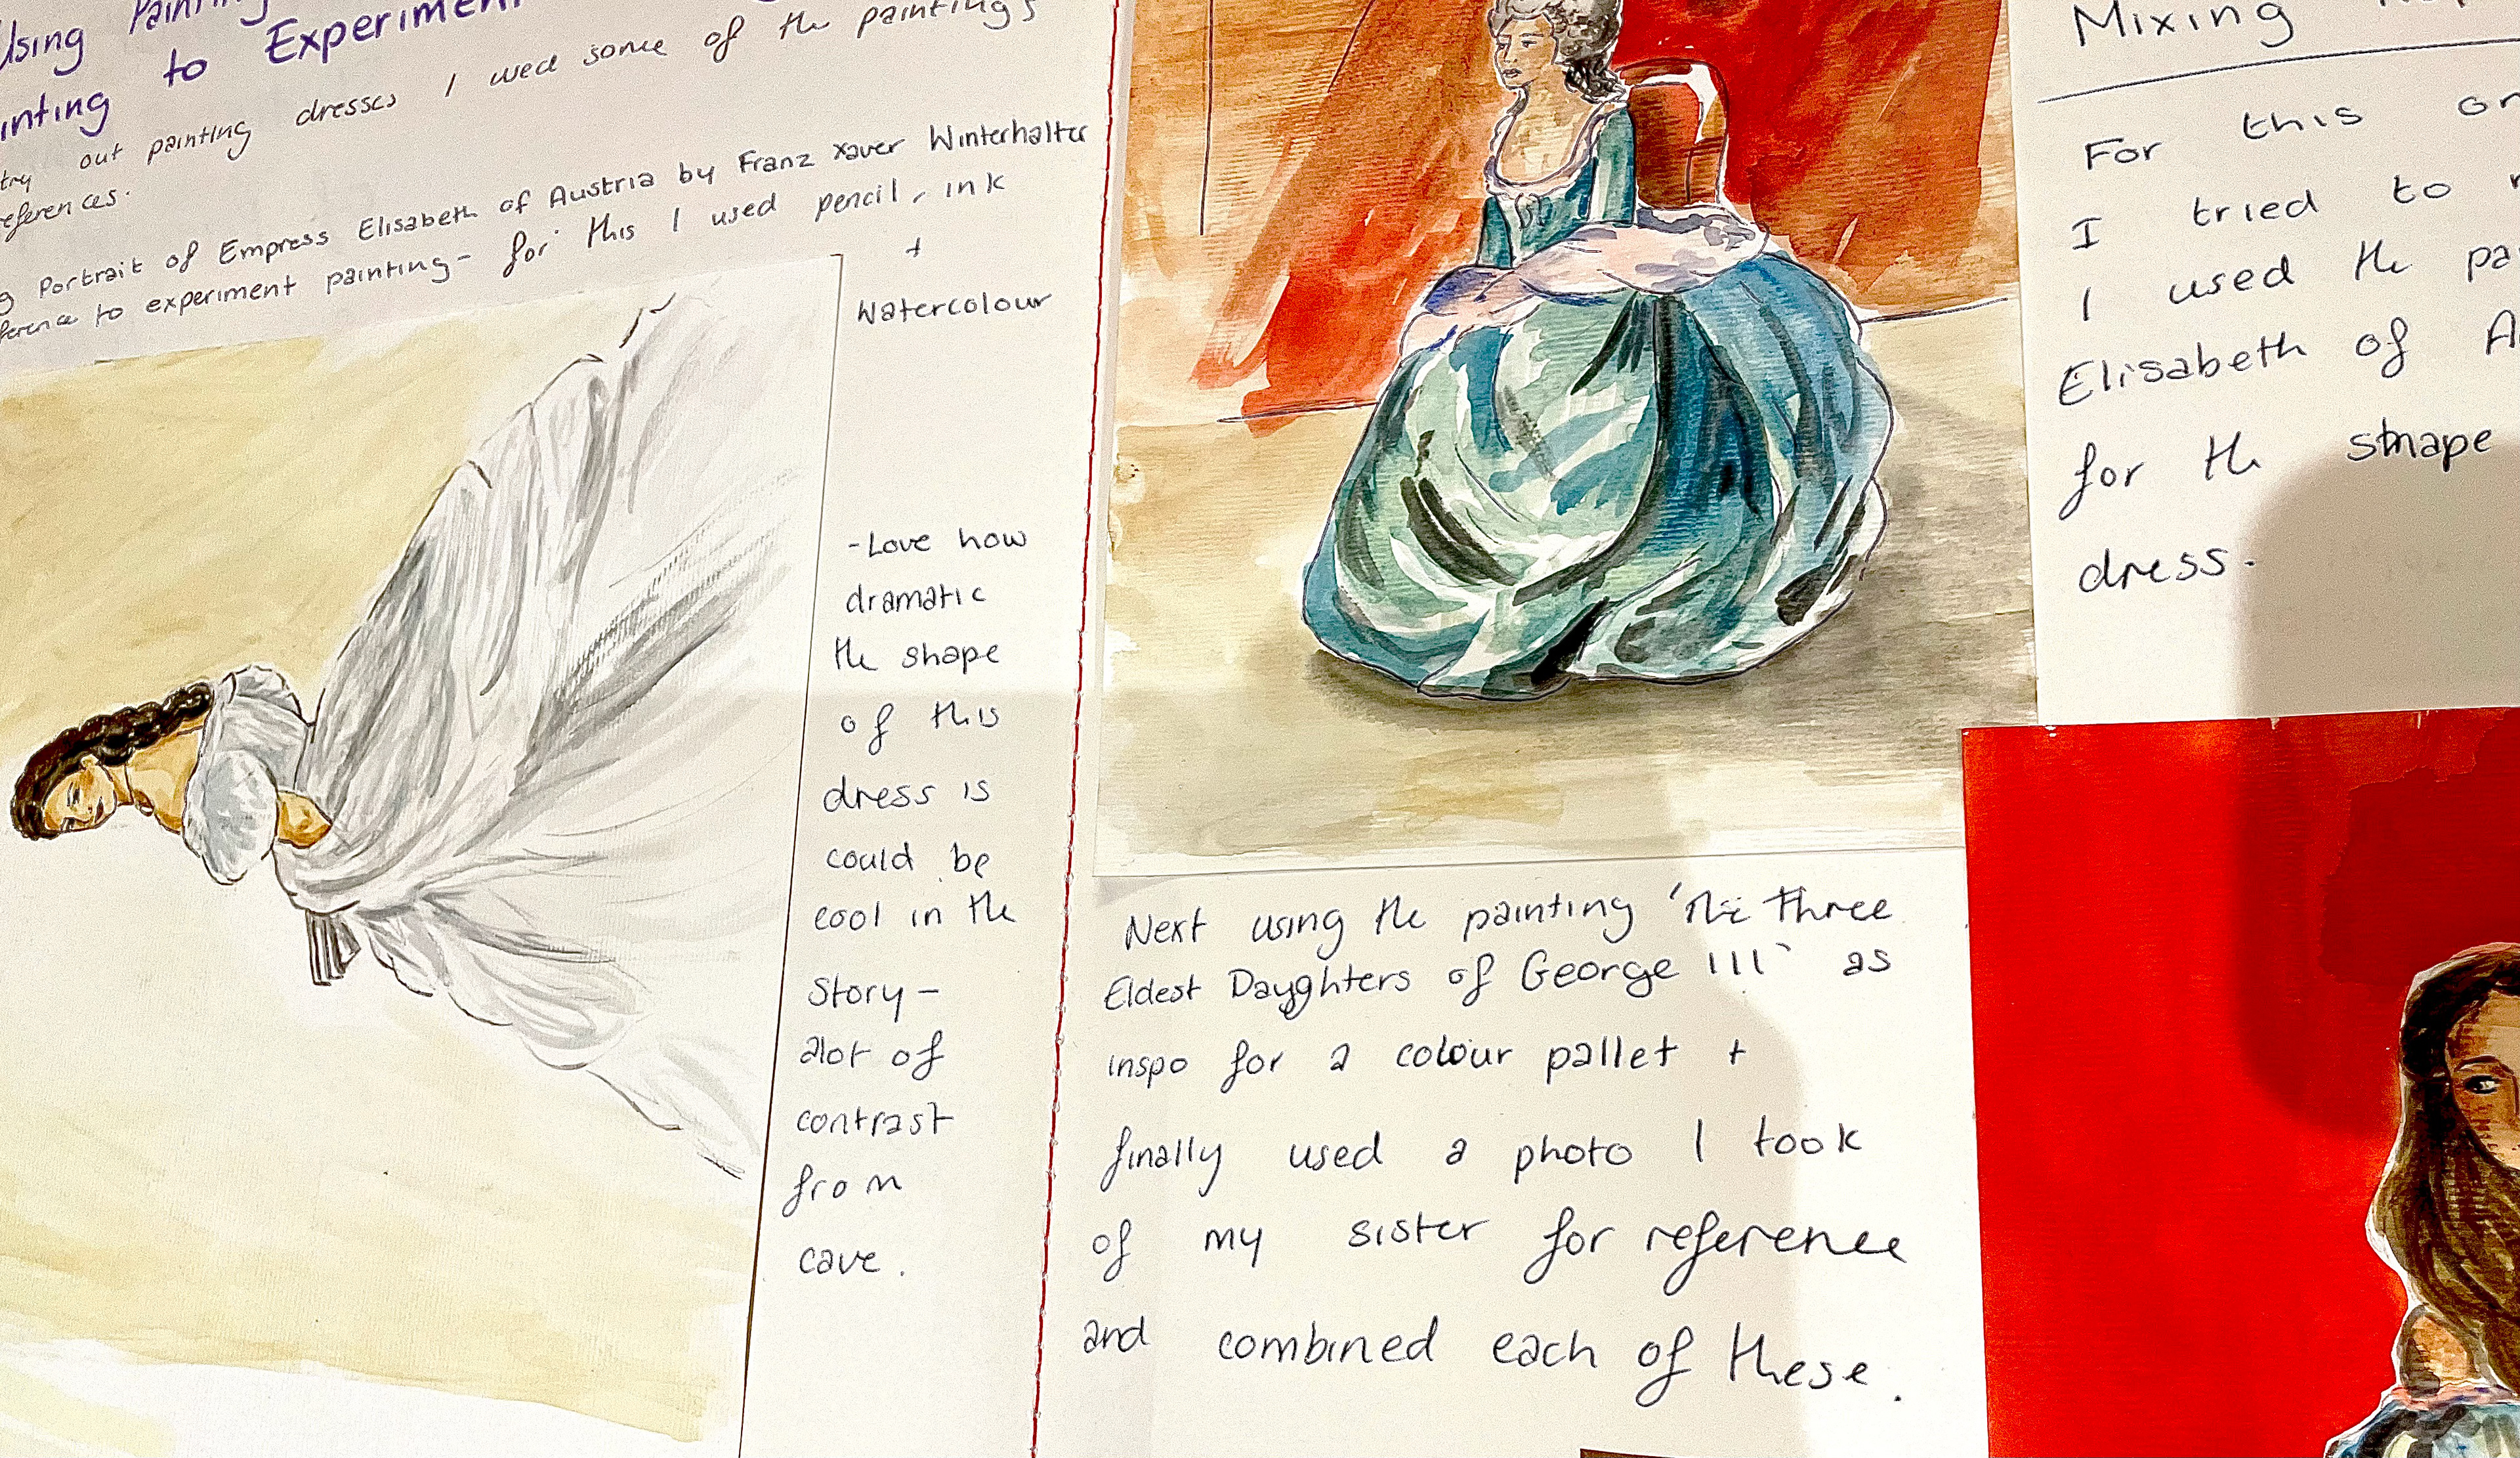 Using Painting
inting to Experiment
try out painting dresses I used some of the paintings
references.
g Portrait of Empress Elisabeth of Austria by Franz Xaver Winterhalter
ference to experiment painting - for this I used pencil, ink
+
Watercolour
- Love how
dramatic
the shape
of this
dress is
could be
cool in the
story -
alot of
contrast
from
cave.
Next using the painting 'The Three
Eldest Daughters of George III' as
inspo for a colour pallet +
finally used a photo I took
of my sister for reference
and combined each of these.
Mixing
For this on
I tried to
I used the pa
Elisabeth of A
for the shape
dress.